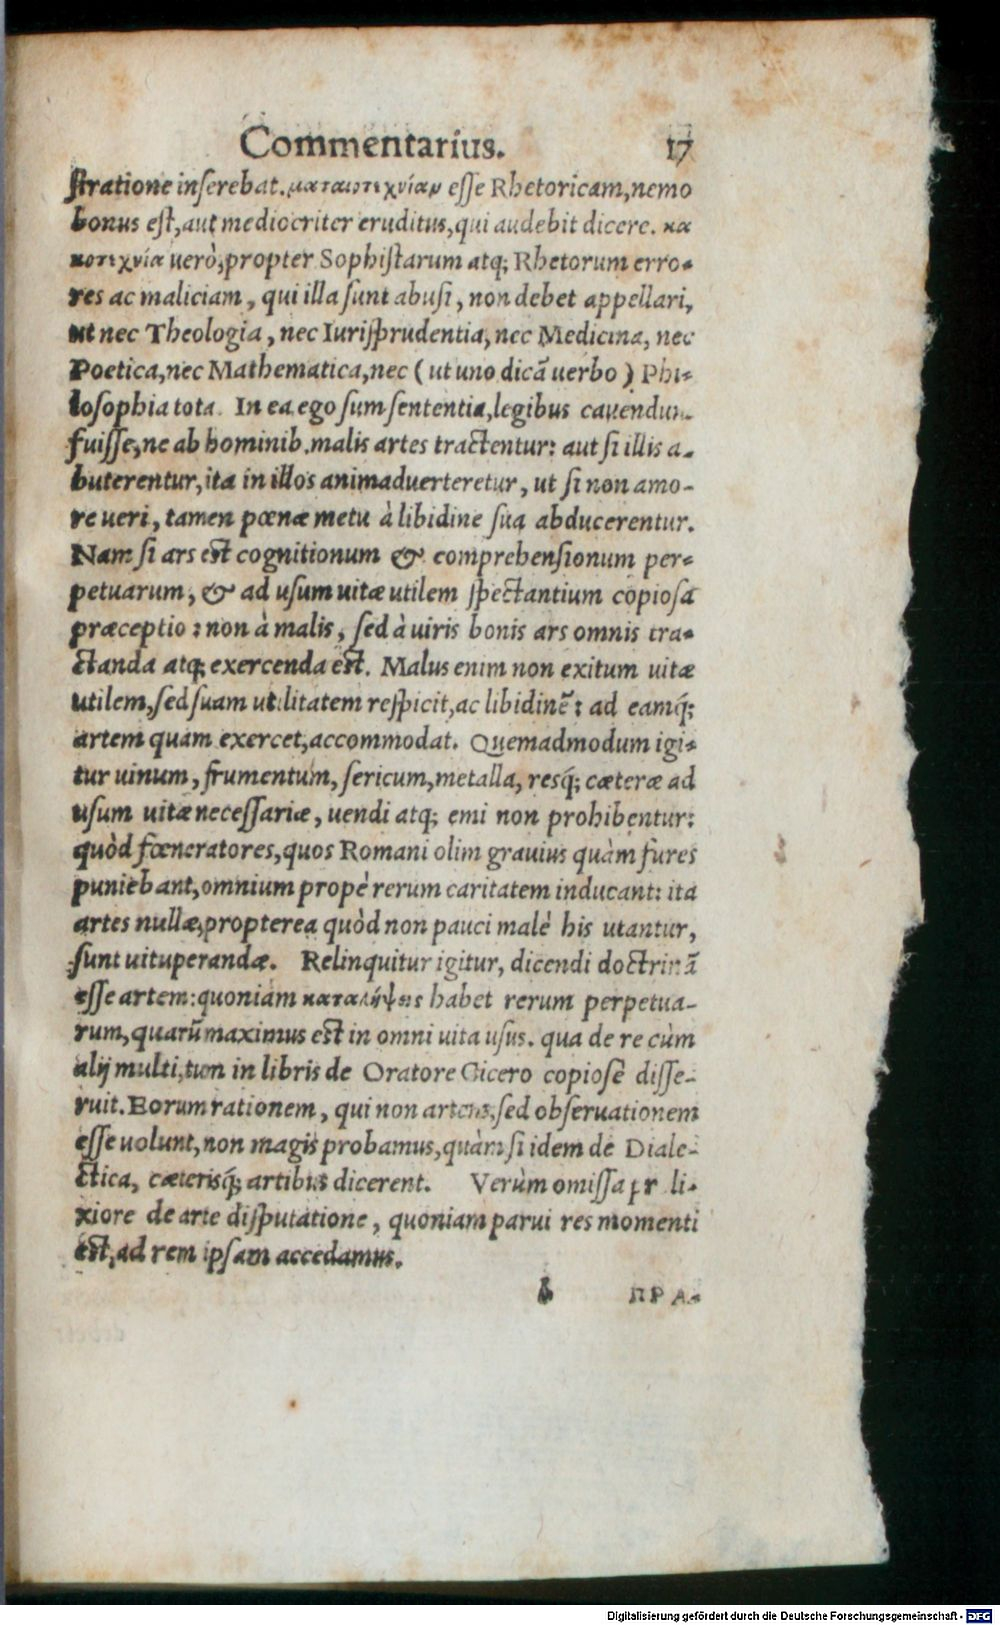 Commentarius. 17
stratione inserebat. ματαιοτεχνίαν esse Rhetoricam, nemo
bonus est, aut mediocriter eruditus, qui audebit dicere. κα
κοτεχνία uerò, propter Sophistarum atq; Rhetorum erro-
res ac maliciam, qui illa sunt abusi, non debet appellari,
ut nec Theologia, nec Iurisprudentia, nec Medicina, nec
Poetica, nec Mathematica, nec (ut uno dicã uerbo) Phi-
losophia tota. In ea ego sum sententia, legibus cauendum
fuisse, ne ab hominib. malis artes tractentur: aut si illis a-
buterentur, ita in illos animaduerteretur, ut si non amo-
re ueri, tamen pœnæ metu à libidine sua abducerentur.
Nam si ars est cognitionum & comprehensionum per-
petuarum, & ad usum uitæ utilem spectantium copiosa
præceptio: non à malis, sed à uiris bonis ars omnis tra-
ctanda atq; exercenda est. Malus enim non exitum uitæ
utilem, sed suam utilitatem respicit, ac libidinẽ: ad eamq́;
artem quam exercet, accommodat. Quemadmodum igi-
tur uinum, frumentum, sericum, metalla, resq́; cæteræ ad
usum uitæ necessariæ, uendi atq; emi non prohibentur:
quòd fœneratores, quos Romani olim grauius quàm fures
puniebant, omnium propè rerum caritatem inducant: ita
artes nullæ, propterea quòd non pauci malè his utantur,
sunt uituperandæ. Relinquitur igitur, dicendi doctrinã
esse artem: quoniam καταλήψεις habet rerum perpetua-
rum, quarũ maximus est in omni uita usus. qua de re cùm
alij multi, tum in libris de Oratore Cicero copiosè disse-
ruit. Eorum rationem, qui non artem, sed obseruationem
esse uolunt, non magis probamus, quàm si idem de Diale-
ctica, cæterisq́; artibus dicerent. Verùm omissa proli-
xiore de arte disputatione, quoniam parui res momenti
est, ad rem ipsam accedamus.
b ΠΡΑ-
Digitalisierung gefördert durch die Deutsche Forschungsgemeinschaft - DFG